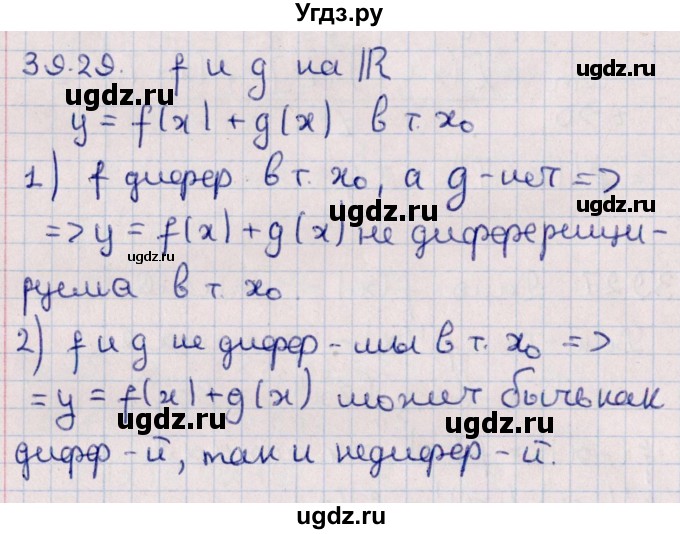 Угдз.ру
39.29. f и g на ℝ
ugdz.ru ugdz.ru
y = f(x) + g(x) в т. x₀
1) f дифер в т. x₀, а g - нет =>
ugdz.ru
=> y = f(x) + g(x) не диференци-
ugdz.ru
руема в т. x₀.
ugdz.ru
2) f и g не дифер - мы в т. x₀ =>
= y = f(x) + g(x) может быть как
ugdz.ru ugdz.ru
дифф - й, так и недифер - й.
ugdz.ru
ugdz.ru